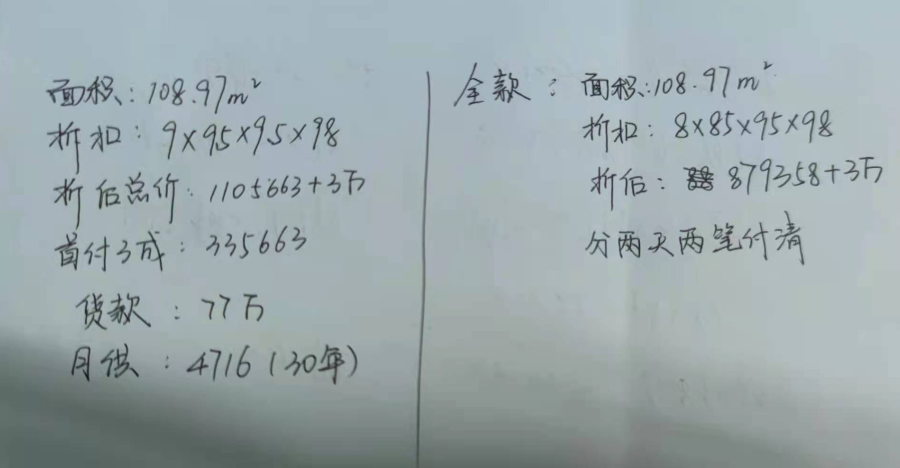 面积:108.97m²
折扣:9×95×95×98
折后总价:1105663+3万
首付3成:335663
贷款:77万
月供:4716(30年)
全款:面积:108.97m²
折扣:8×85×95×98
折后:879358+3万
分两天两笔付清